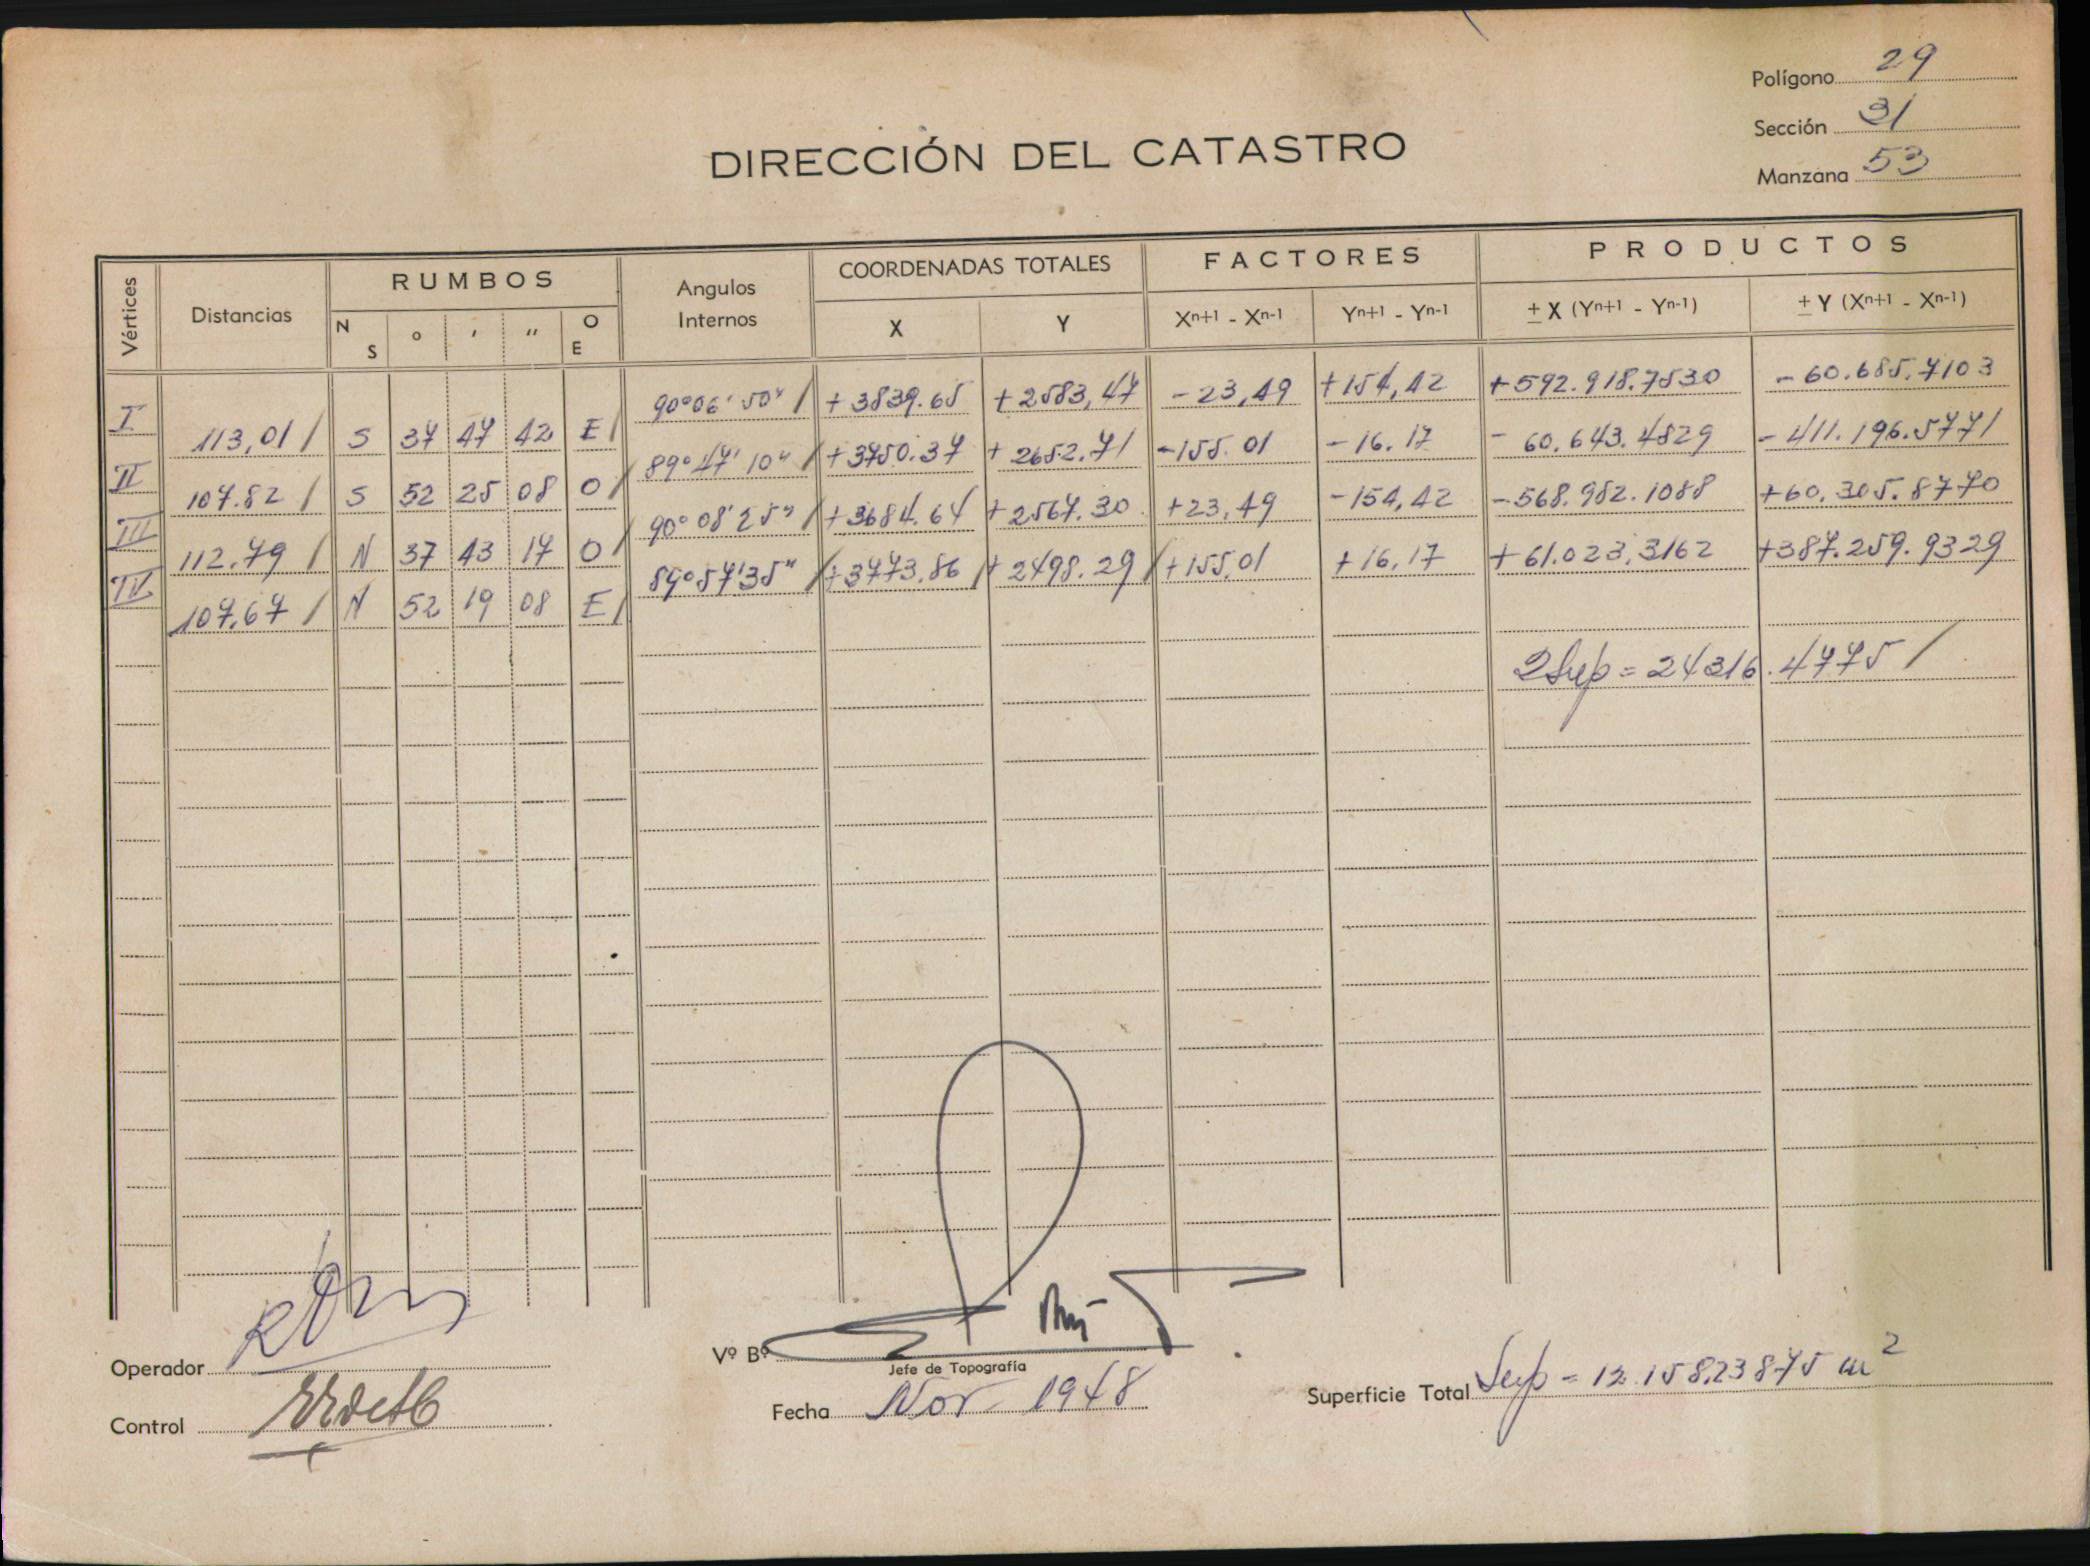 Polígono 29
Sección 31
Manzana 53
DIRECCIÓN DEL CATASTRO
Vértices Distancias RUMBOS Angulos Internos COORDENADAS TOTALES FACTORES PRODUCTOS
N S ° ' '' O E X Y Xn+1 - Xn-1 Yn+1 - Yn-1 ± X (Yn+1 - Yn-1) ± Y (Xn+1 - Xn-1)
I 90°06'50" / +3839.65 +2583,47 -23,49 +154,42 +592.918.7530 -60.685.7103
113,01 / S 37 47 42 E /
II 89°47'10" / +3750.37 +2652.71 -155.01 -16.17 -60.643.4829 -411.196.5771
107.82 / S 52 25 08 O /
III 90°08'25" / +3684.64 +2567.30 +23,49 -154,42 -568.982.1088 +60.305.8770
112.79 / N 37 43 17 O /
IV 89°57'35" / +3773,86 / +2498.29 / +155,01 +16,17 +61.023,3162 +387.259.9329
107,67 / N 52 19 08 E /
2Sup = 24316.4775 /
Operador
Vº Bº
Jefe de Topografía
Control
Fecha Nov 1948
Superficie Total Sup = 12.158,23875 m²